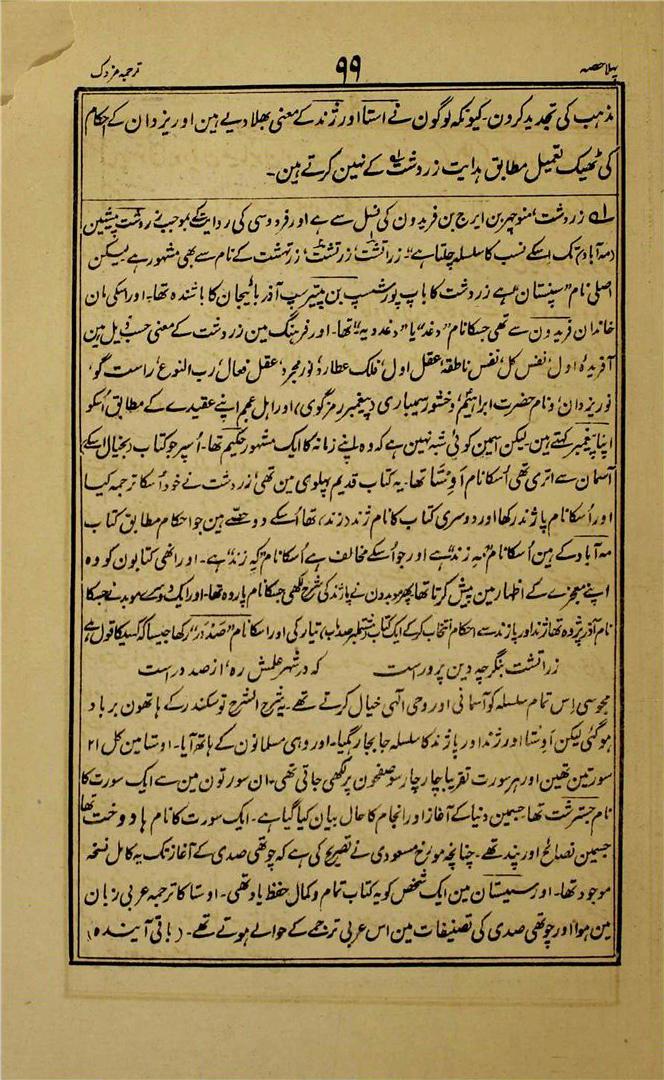 پہلا حصہ ۹۹ ترجمہ مزدک
مذہب کی تجدید کرون۔ کیونکہ لوگون نے استا اور ژند کے معنی بھلا دیے ہین اور یزدان کے احکام
کی ٹھیک تعمیل مطابق ہدایت زردشت کے نہین کرتے ہین۔
زردشت، منوچہر بن ایرج بن فریدون کی نسل سے ہے اور فردوسی کی روایت کے بموجب زردشت پیشین
(مہ آباد) تک اسکے نسب کا سلسلہ چلتا ہے۔ زراتشت، زرتشت، زرتہشت کے نام سے بھی مشہور ہے لیکن
اصلی نام "سپنتان" ہے زردشت کا باپ پورشسپ بن پتیرسپ آذربائیجان کا باشندہ تھا۔ اور اسکی مان
خاندان فریدون سے تھی جسکا نام "دغد" یا "دغدویہ" تھا۔ اور فرہنگ مین زردشت کے معنی حسب ذیل ہین
آفریدہ اول، نفس کل، نفس ناطقہ، عقل اول، فلک عطارد، نور مجرد، عقل فعال، رب النوع، راست گو،
نور یزدان، و نام حضرت ابراہیم، دخشور سیمباری (پیغمبر رمز گوی) اور اہل عجم اپنے عقیدے کے مطابق اسکو
اپنا پیغمبر کہتے ہین۔ لیکن اسمین کوئی شبہ نہین ہے کہ وہ اپنے زمانہ کا ایک مشہور حکیم تھا۔ اُسپر جو کتاب (بخیال اسکے)
آسمان سے اتری تھی اُسکا نام اَوِسْتا تھا۔ یہ کتاب قدیم پہلوی مین تھی، زردشت نے خود اُسکا ترجمہ کیا
اور اُسکا نام پاژند رکھا اور دوسری کتاب کا نام ژند (زند) تھا، اُسکے دو حصے ہین جو احکام مطابق کتاب
مہ آباد کے ہین اُسکا نام "مہ زند" ہے اور جو اُسکے مخالف ہے اُسکا نام "کہ زند" ہے۔ اور انھی کتابون کو وہ
اپنے معجزے کے اظہار مین پیش کرتا تھا پھر موبدون نے پاژند کی شرح لکھی جسکا نام یاردہ تھا۔ اور ایک دوسرے موبد نے جسکا
نام آذرپژدہ تھا ژند اور پازند سے احکام انتخاب کرکے ایک کتاب تیار کی اور اسکا نام "صَدْ دَرْ" رکھا جیسا کہ کسیکا قول ہے
زراتشت بنگر چہ دین پرورست کہ در شہر علمش رہ از صد درست
مجوسی اس تمام سلسلہ کو آسمانی اور وحی الٰہی خیال کرتے تھے۔ یہ شرح الشرح تو سکندر کے ہاتھون برباد
ہوگئی لیکن اَوِسْتا اور ژند اور پاژند کا سلسلہ جابجا رہگیا۔ اور وہی مسلمانون کے ہاتھ آیا۔ اوستا مین کل ۲۱
سورتین تھین اور ہر سورت تقریباً چار چار سو صفحون پر لکھی جاتی تھی۔ ان سورتون مین سے ایک سورت کا
نام جسترشت تھا جسمین دنیا کے آغاز اور انجام کا حال بیان کیا گیا ہے۔ ایک سورت کا نام ہادوخت تھا
جسمین نصائح اور پند تھے۔ چنانچہ مورخ مسعودی نے تصریح کی ہے کہ چوتھی صدی کے آغاز تک یہ کامل نسخہ
موجود تھا۔ اور سیستان مین ایک شخص کو یہ کتاب تمام و کمال حفظ یاد تھی۔ اوستا کا ترجمہ عربی زبان
مین ہوا اور چوتھی صدی کی تصنیفات مین اس عربی ترجمے کے حوالے ہوتے تھے۔ (باقی آیندہ)